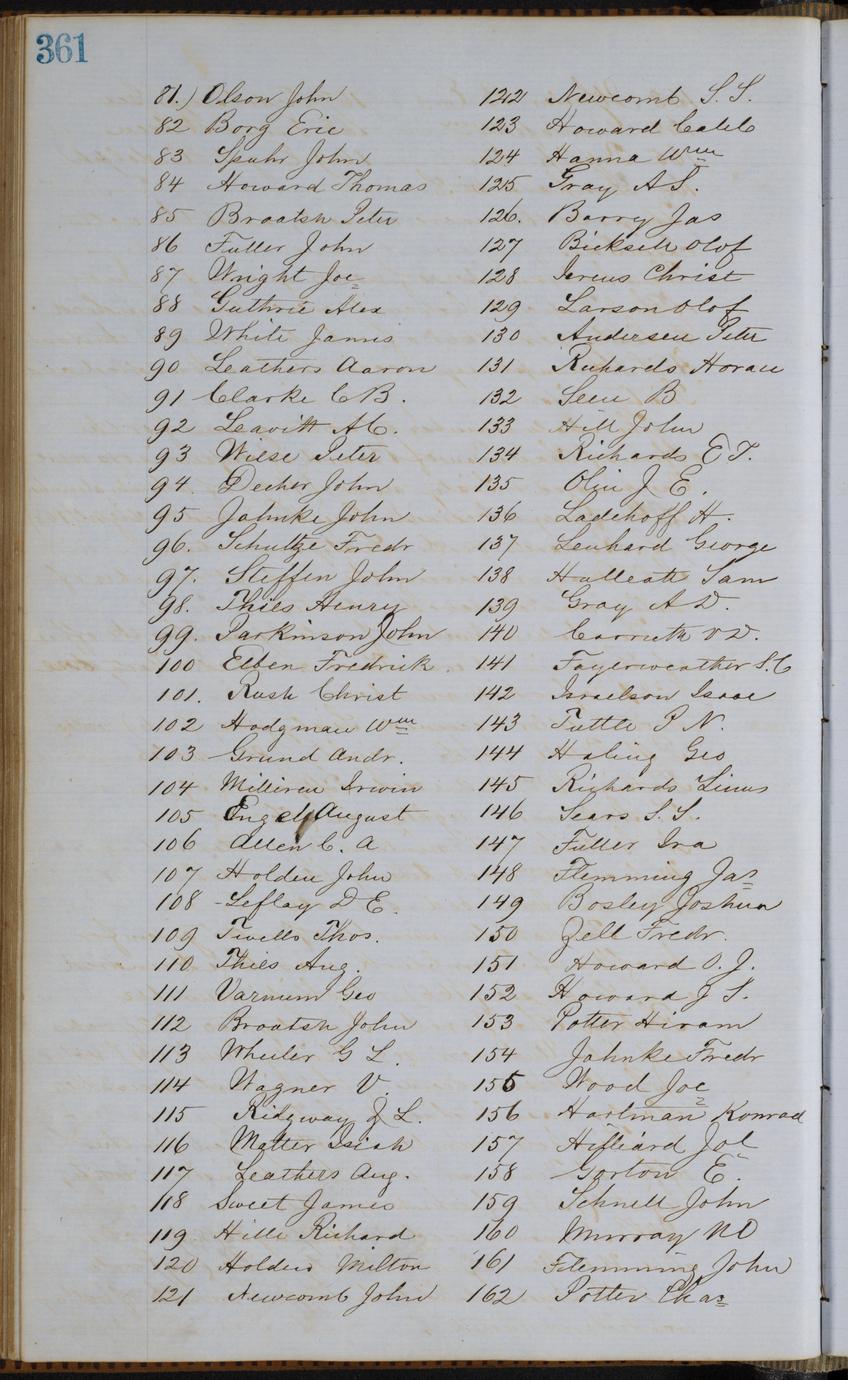 361
81.) Olson John
82 Borg Eric
83 Spuhr John
84 Howard Thomas
85 Braatsh Peter
86 Fuller John
87 Wright Joe
88 Guthrie Alex
89 White James
90 Leathers Aaron
91 Clarke C B.
92 Leavitt A C.
93 Wiese Peter
94. Decker John
95 Jahnke John
96. Schultze Fredr
97. Steffen John
98. Thies Henry
99. Parkinson John
100 Elben Fredrick
101. Rush Christ
102 Hodgman Wm
103 Grund Andr.
104 Milliren Irwin
105 Engel August
106 Allen C. A
107 Holden John
108 Leflay D E.
109 Twells Thos.
110 Thies Aug.
111 Varnum Geo
112 Braatsh John
113 Wheeler G L.
114 Wagner V.
115 Ridgway J L.
116 Matter Isiah
117 Leathers Aug.
118 Sweet James
119 Hille Richard
120 Holden Milton
121 Newcomb John
122 Newcomb S. S.
123 Howard Caleb
124 Hanna Wm
125 Gray A S.
126. Barry Jas
127 Bicksell Olof
128 Christ
129 Larson Olof
130 Andersen Peter
131 Richards Horace
132 B
133 Hill John
134 Richards E T.
135 Olin J E.
136 Ladehoff H.
137 Lenhard George
138 Sam
139 Gray A D.
140 Carruth O D.
141 Fayerweather S. C
142 Israelson Isaac
143 Tuttle P N.
144 Haling Geo
145 Richards Linus
146 Sears S. S.
147 Fuller Ira
148 Flemming Jas
149 Bosley Joshua
150 Zell Fredr.
151 Howard O. J.
152 Howard J S.
153 Potter Hiram
154 Jahnke Fredr
155 Wood Joe
156 Hartman Konrad
157 Hilliard Joe
158 Gorton E.
159 Schnell John
160 Murray N D
161 Flemming John
162 Potter Chas